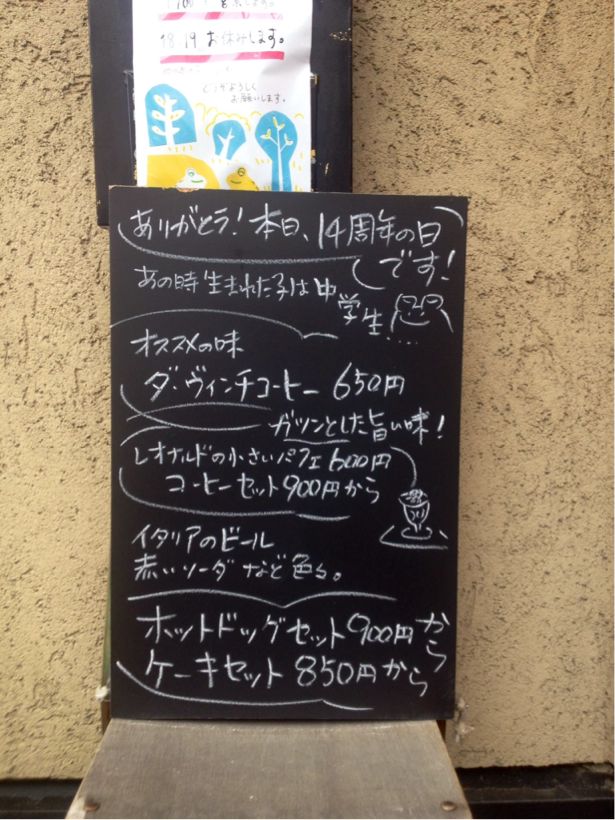 18 19 お休みします。
どうぞよろしく
お願いします。
ありがとう！本日、14周年の日
です！
あの時生まれた子は中
学生
オススメの味
ダ・ヴィンチコーヒー 650円
ガツンとした旨い味！
レオナルドの小さいパフェ 600円
コーヒーセット900円から
イタリアのビール
赤いソーダ など色々。
ホットドッグセット900円から
ケーキセット 850円から